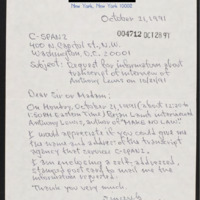 New York, New York 10022
October 21, 1991
C-SPAN 2
004712 OCT 28 91
400 N. Capitol St., N.W.
Washington, D.C. 20001
Subject: Request for information about
transcript of interview of
Anthony Lewis on 10/21/91
Dear Sir or Madam:
On Monday, October 21, 1991 (about 12:00 to
1:00 PM Eastern Time) Brian Lamb interviewed
Anthony Lewis, author of "MAKE NO LAW".
I would appreciate it if you could give
me the name and address of the transcript
agency that services C-SPAN 2.
I am enclosing a self-addressed,
stamped post card to mail me the
information requested.
Thank you very much.